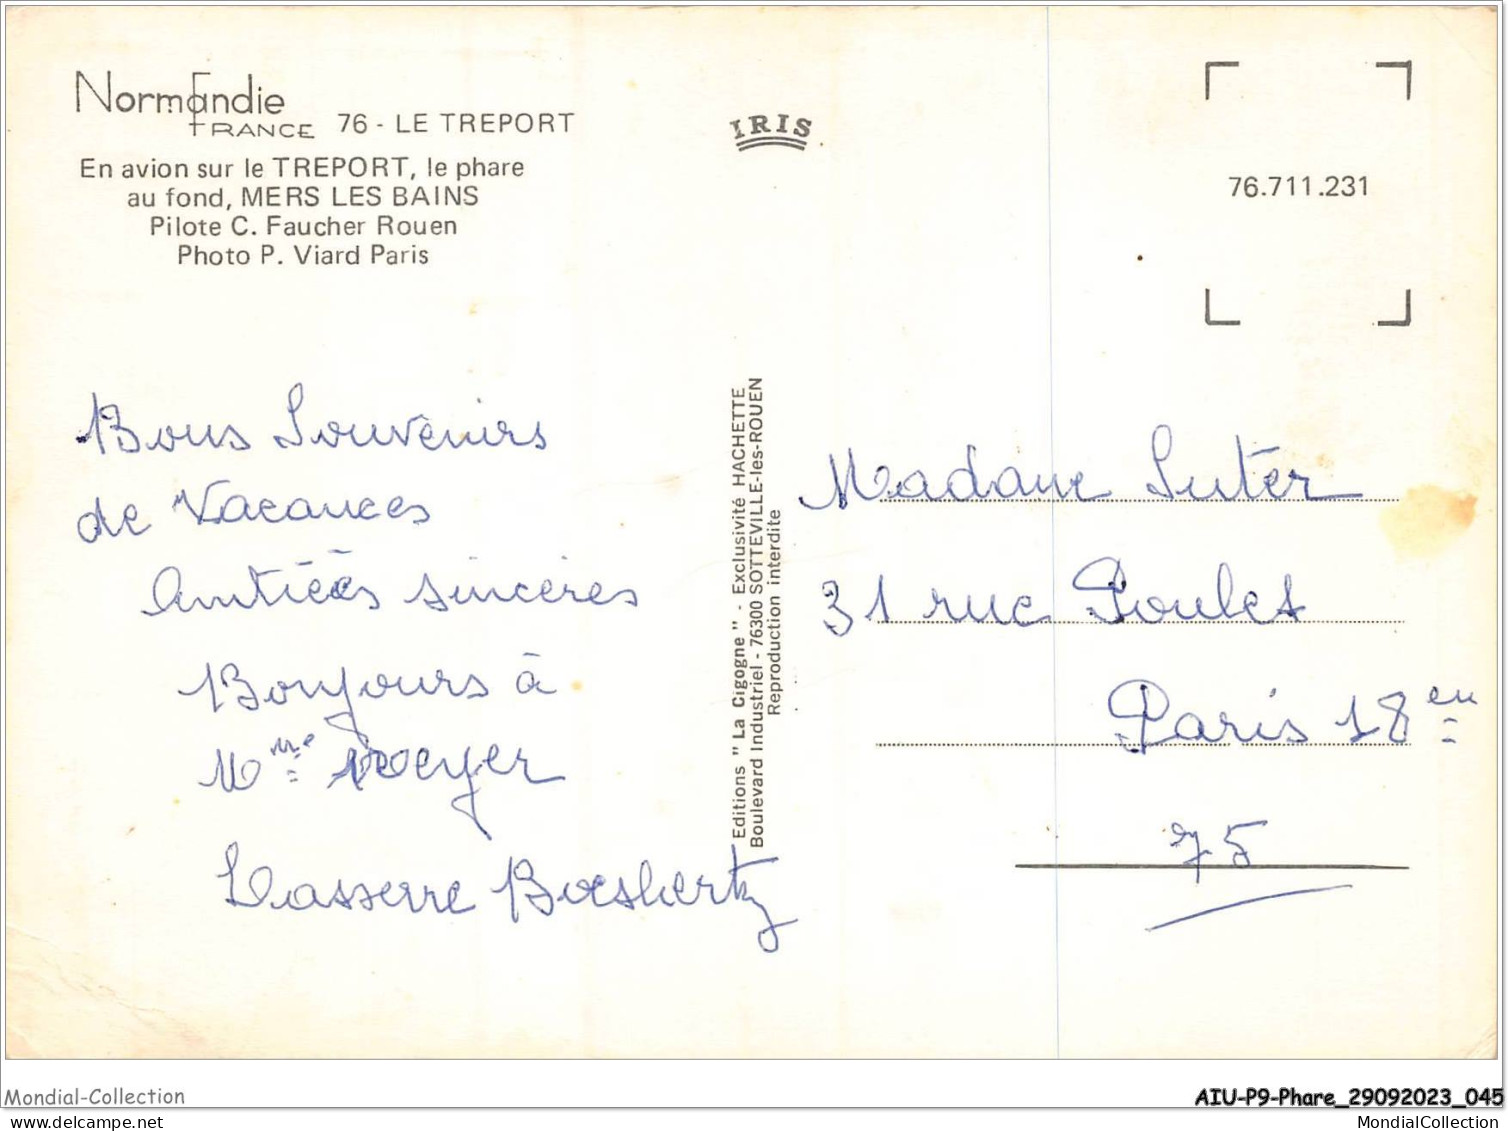 Normandie
FRANCE 76 - LE TREPORT
En avion sur le TREPORT, le phare
au fond, MERS LES BAINS
Pilote C. Faucher Rouen
Photo P. Viard Paris
IRIS
76.711.231
Bons Souvenirs
de Vacances
Amitiées sincères
Bonjours à
Mme
Lasserre
Editions " La Cigogne " - Exclusivité HACHETTE
Boulevard Industriel - 76300 SOTTEVILLE-les-ROUEN
Reproduction interdite
Madame Suter
31 rue Poulet
Paris 18en
75
Mondial-Collection
AIU-P9-Phare_29092023_045
https://www.delcampe.net
MondialCollection